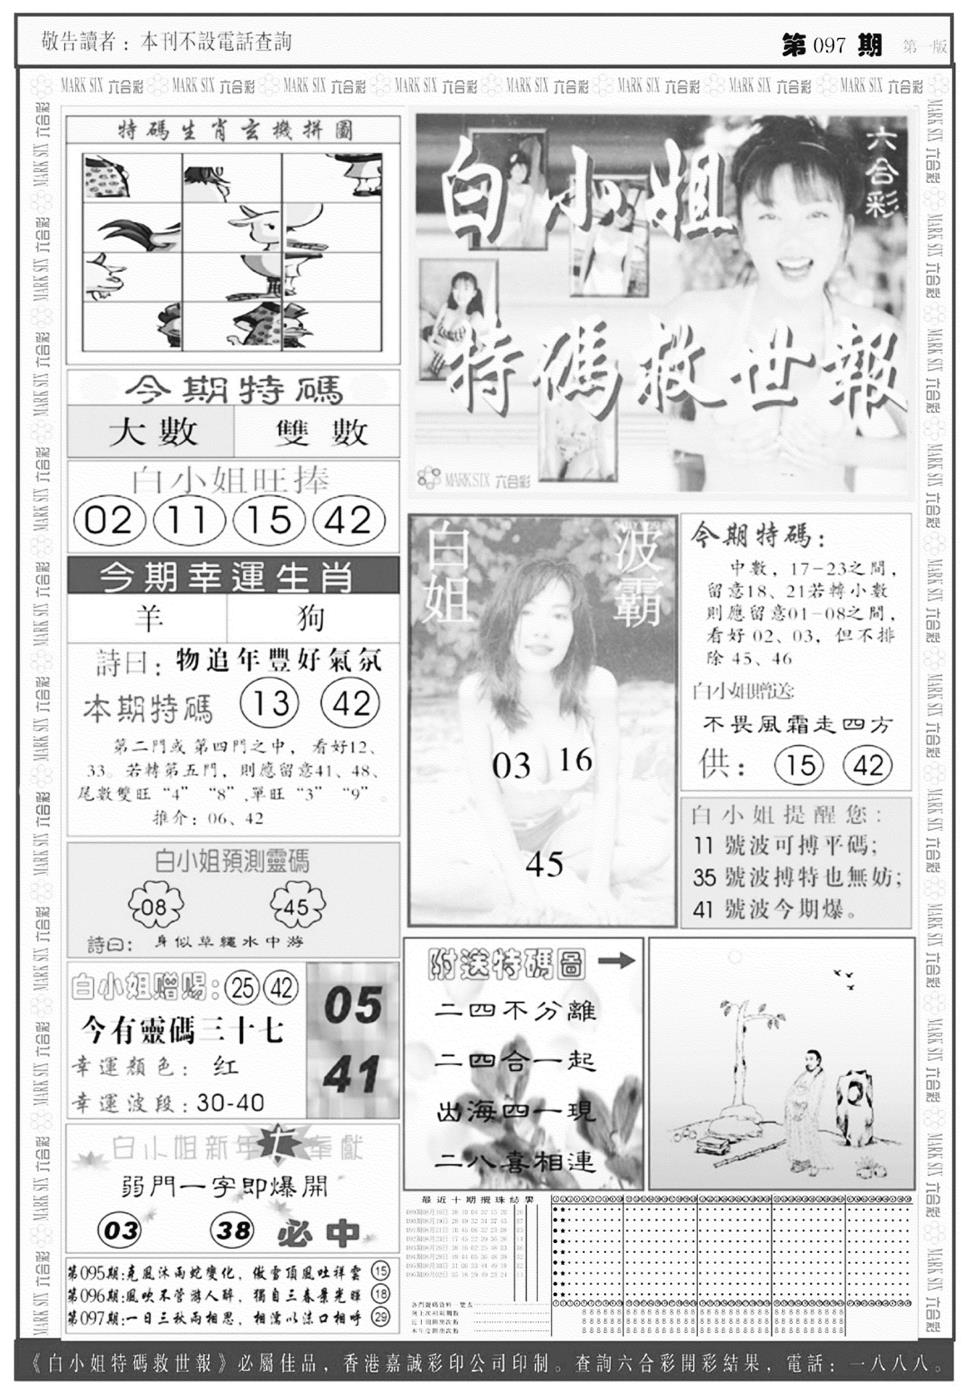 敬告讀者：本刊不設電話查詢
第 097 期 第一版
MARK SIX 六合彩 MARK SIX 六合彩 MARK SIX 六合彩 MARK SIX 六合彩 MARK SIX 六合彩 MARK SIX 六合彩 MARK SIX 六合彩 MARK SIX 六合彩
特碼生肖玄機拼圖
今期特碼
大數 雙數
白小姐旺捧
02 11 15 42
今期幸運生肖
羊 狗
詩曰：物追年豐好氣氛
本期特碼 13 42
第二門或第四門之中，看好12、
33。若轉第五門，則應留意41、48、
尾數雙旺“4”“8”,單旺“3”“9”。
推介：06、42
白小姐預測靈碼
08 45
詩曰：身似草繩水中游
白小姐赠赐：25 42
今有靈碼三十七
幸運顏色：红
幸運波段：30-40
05
41
白小姐新年大奉獻
弱門一字即爆開
03 38 必中
第095期:克風沐雨蛇變化，傲雪頂風吐祥雲 15
第096期:風吹不管游人醉，獨自三春景光輝 18
第097期:一日三秋兩相思，相濡以沫口相呼 29
白小姐
六合彩
特碼救世報
MARK SIX 六合彩
白姐
波霸
03 16
45
今期特碼：
中數，17-23之間，
留意18、21若轉小數
則應留意01-08之間，
看好 02、03，但不排
除 45、46
白小姐贈送:
不畏風霜走四方
供： 15 42
白小姐提醒您：
11 號波可搏平碼；
35 號波搏特也無妨；
41 號波今期爆。
附送特碼圖
二四不分離
二四合一起
出海四一現
二八喜相連
最近十期攪珠結果
《白小姐特碼救世報》必屬佳品，香港嘉誠彩印公司印制。查詢六合彩開彩結果，電話：一八八八。